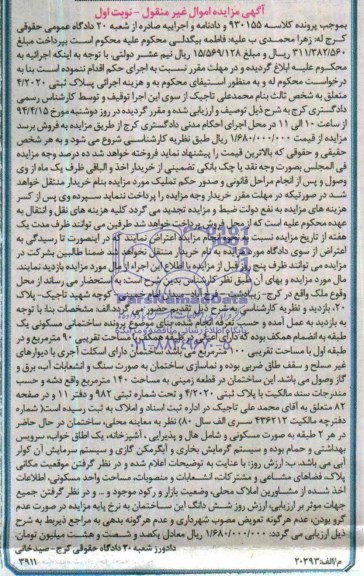 آگهی مزایده اموال غیر منقول - نوبت اول
بموجب پرونده کلاسه ۹۳۰۱۵۵ و دادنامه و اجراییه صادره از شعبه ۲۰ دادگاه عمومی حقوقی
کرج له: زهرا محمدی ب علیه: فاطمه بیگدلی محکوم علیه محکوم است بپرداخت مبلغ
۳۱۱/۳۸۲/۵۶۰ ریال و مبلغ ۱۵/۵۶۹/۱۲۸ ریال نیم عشر دولتی. با توجه به اینکه اجرائیه به
محکوم علیه ابلاغ گردیده و در مهلت مقرر نسبت به اجرای حکم اقدام ننموده است بنا به
درخواست محکوم له و به منظور استیفای محکوم به و هزینه اجرائی پلاک ثبتی ۴/۲۰۲۰
متعلق به شخص ثالث بنام محمدعلی تاجیک از سوی این اجرا توقیف و توسط کارشناس رسمی
دادگستری کرج به شرح ذیل توصیف و ارزیابی شده و مقرر گردیده در روز دوشنبه مورخ ۹۴/۴/۱۵
از ساعت ۱۰ الی ۱۱ در محل اجرای احکام مدنی دادگستری کرج از طریق مزایده به فروش برسد
مزایده از قیمت ۱/۶۸۰/۰۰۰/۰۰۰ ریال طبق نظریه کارشناسی شروع می شود و به هر شخص
حقیقی و حقوقی که بالاترین قیمت را پیشنهاد نماید فروخته خواهد شد ده درصد وجه مزایده
فی المجلس بصورت وجه نقد یا چک بانکی تضمینی از خریدار اخذ و الباقی ظرف یک ماه از وی
وصول و پس از انجام مراحل قانونی و صدور حکم تملیک مورد مزایده بنام خریدار منتقل خواهد
شد در صورتیکه در مهلت مقرر خریدار وجه مزایده را پرداخت ننماید سپرده وی پس از کسر
هزینه های مزایده به نفع دولت ضبط و مزایده تجدید می گردد کلیه هزینه های نقل و انتقال به
عهده محکوم علیه است که از محل فروش مزایده پرداخت خواهد شد طرفین می توانند ظرف مدت یک
هفته از تاریخ مزایده نسبت به انجام مزایده اعتراض نمایند که در اینصورت تا رسیدگی به
اعتراض از سوی دادگاه مورد مزایده به نام خریدار منتقل نخواهد شد ضمنا طالبین بشرکت در
مزایده می توانند ظرف پنج روز قبل از مزایده با اطلاع این اجرا از مال مورد مزایده بازدید نمایند.
مال مورد مزایده و بهای آن طبق نظر کارشناس بدین شرح است: استحضار می رساند از محل
وقوع ملک واقع در کرج- کوچه شهید تاجیک- پلاک
۲۰ بازدید و نظریه کارشناسی بشرح ذیل تقدیم حضور می گردد. الف: مشخصات بنا: با توجه
به بازدید به عمل آمده و حسب موضوع پرونده ساختمانی مسکونی یک
طبقه به انضمام همکف بوده که دارای طبقه همکف با مساحت تقریبی ۹۰ مترمربع و در
طبقه اول با مساحت تقریبی مربع می باشد ساختمان دارای اسکلت آجری با دیوارهای
غیر مسلح و سقف طاق ضربی بوده و نماسازی ساختمان به صورت سنگ و انشعابات آب، برق و
گاز وصول می باشد. این ساختمان در قطعه زمینی به مساحت ۱۴۰ مترمربع واقع شده و حسب
مندرجات سند مالکیت با پلاک ثبتی ۴/۲۰۲۰ و تحت شماره ثبتی ۹۸۲ و دفتر ۱۱ و در صفحه
۸۲ متعلق به آقای محمد علی تاجیک در اداره ثبت اسناد و املاک به ثبت رسیده است( شماره
دفترچه مالکیت ۴۳۶۲۱۲ سری الف سال ۸۰) نظر به معاینه محلی، ساختمان در حال حاضر
در هر ۲ طبقه به صورت مسکونی و شامل هال و پذیرایی ، آشپزخانه، یک اطاق خواب، سرویس
بهداشتی و حمام بوده و سیستم گرمایش بخاری و آبگرمکن گازی و سیستم سرمایش آن کولر
آبی می باشد. ب: ارزش روز: با عنایت به توضیحات اعلام شده و در نظر گرفتن موقعیت مکانی
پلاک، فضاهای مشاعی و مشترکات، انشعابات و منصوبات، مساحت واحد مسکونی، اطلاعات
اخذ شده از مشاورین املاک محلی، وضعیت بازار و رکود موجود و.. و در نظر گرفتن جمیع
جهات موثر بر ارزیابی، ارزش روز شش دانگ این ساختمان به نرخ پایه مزایده در صورت عدم
گرو بودن، عدم هرگونه تعویض مصوب شهرداری و عدم هرگونه بدهی به مراجع ذیربط به شرح
ذیل ارزیابی می گردد: ۱/۶۸۰/۰۰۰/۰۰۰ ریال معادل یکصد و شصت و هشت میلیون تومان.
دادورز شعبه ۲۰ دادگاه حقوقی کرج - صیدخانی
م/الف:۲۰۳۹۳ ۳۹۱۱
ParsNamadData